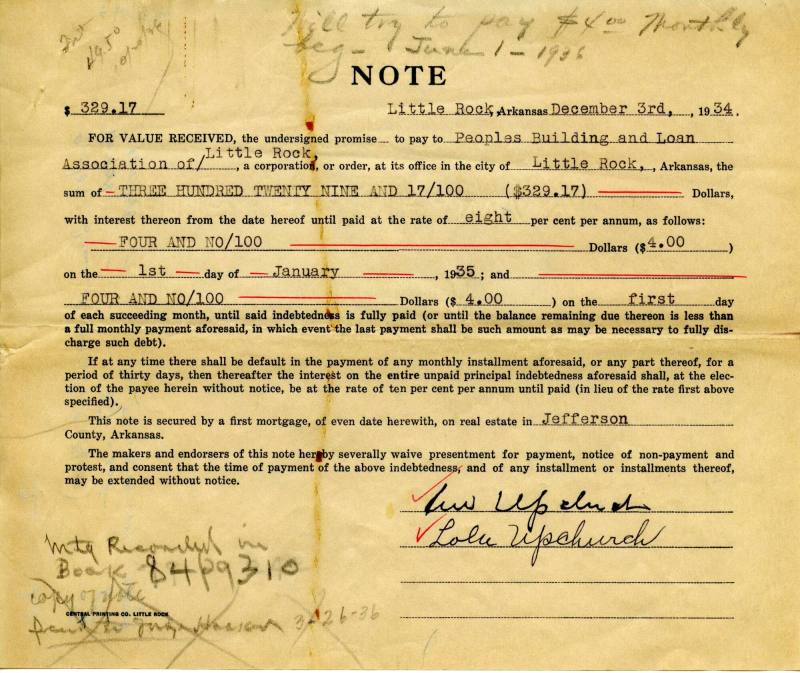 Will try to pay $4.00 monthly
beg - June 1 - 1936
Int
49.50
NOTE
$ 329.17 Little Rock, Arkansas December 3rd, , 1934.
FOR VALUE RECEIVED, the undersigned promise to pay to Peoples Building and Loan
Association of/Little Rock, , a corporation, or order, at its office in the city of Little Rock, , Arkansas, the
sum of THREE HUNDRED TWENTY NINE AND 17/100 ($329.17) Dollars,
with interest thereon from the date hereof until paid at the rate of eight per cent per annum, as follows:
FOUR AND NO/100 Dollars ($4.00 )
on the 1st day of January , 1935; and
FOUR AND NO/100 Dollars ($ 4.00 ) on the first day
of each succeeding month, until said indebtedness is fully paid (or until the balance remaining due thereon is less than
a full monthly payment aforesaid, in which event the last payment shall be such amount as may be necessary to fully dis-
charge such debt).
If at any time there shall be default in the payment of any monthly installment aforesaid, or any part thereof, for a
period of thirty days, then thereafter the interest on the entire unpaid principal indebtedness aforesaid shall, at the elec-
tion of the payee herein without notice, be at the rate of ten per cent per annum until paid (in lieu of the rate first above
specified).
This note is secured by a first mortgage, of even date herewith, on real estate in Jefferson
County, Arkansas.
The makers and endorsers of this note hereby severally waive presentment for payment, notice of non-payment and
protest, and consent that the time of payment of the above indebtedness, and of any installment or installments thereof,
may be extended without notice.
Upchurch
Lola Upchurch
Mtg Recorded in
Book 84 P 9310
copy of note
CENTRAL PRINTING CO. LITTLE ROCK
3-26-36